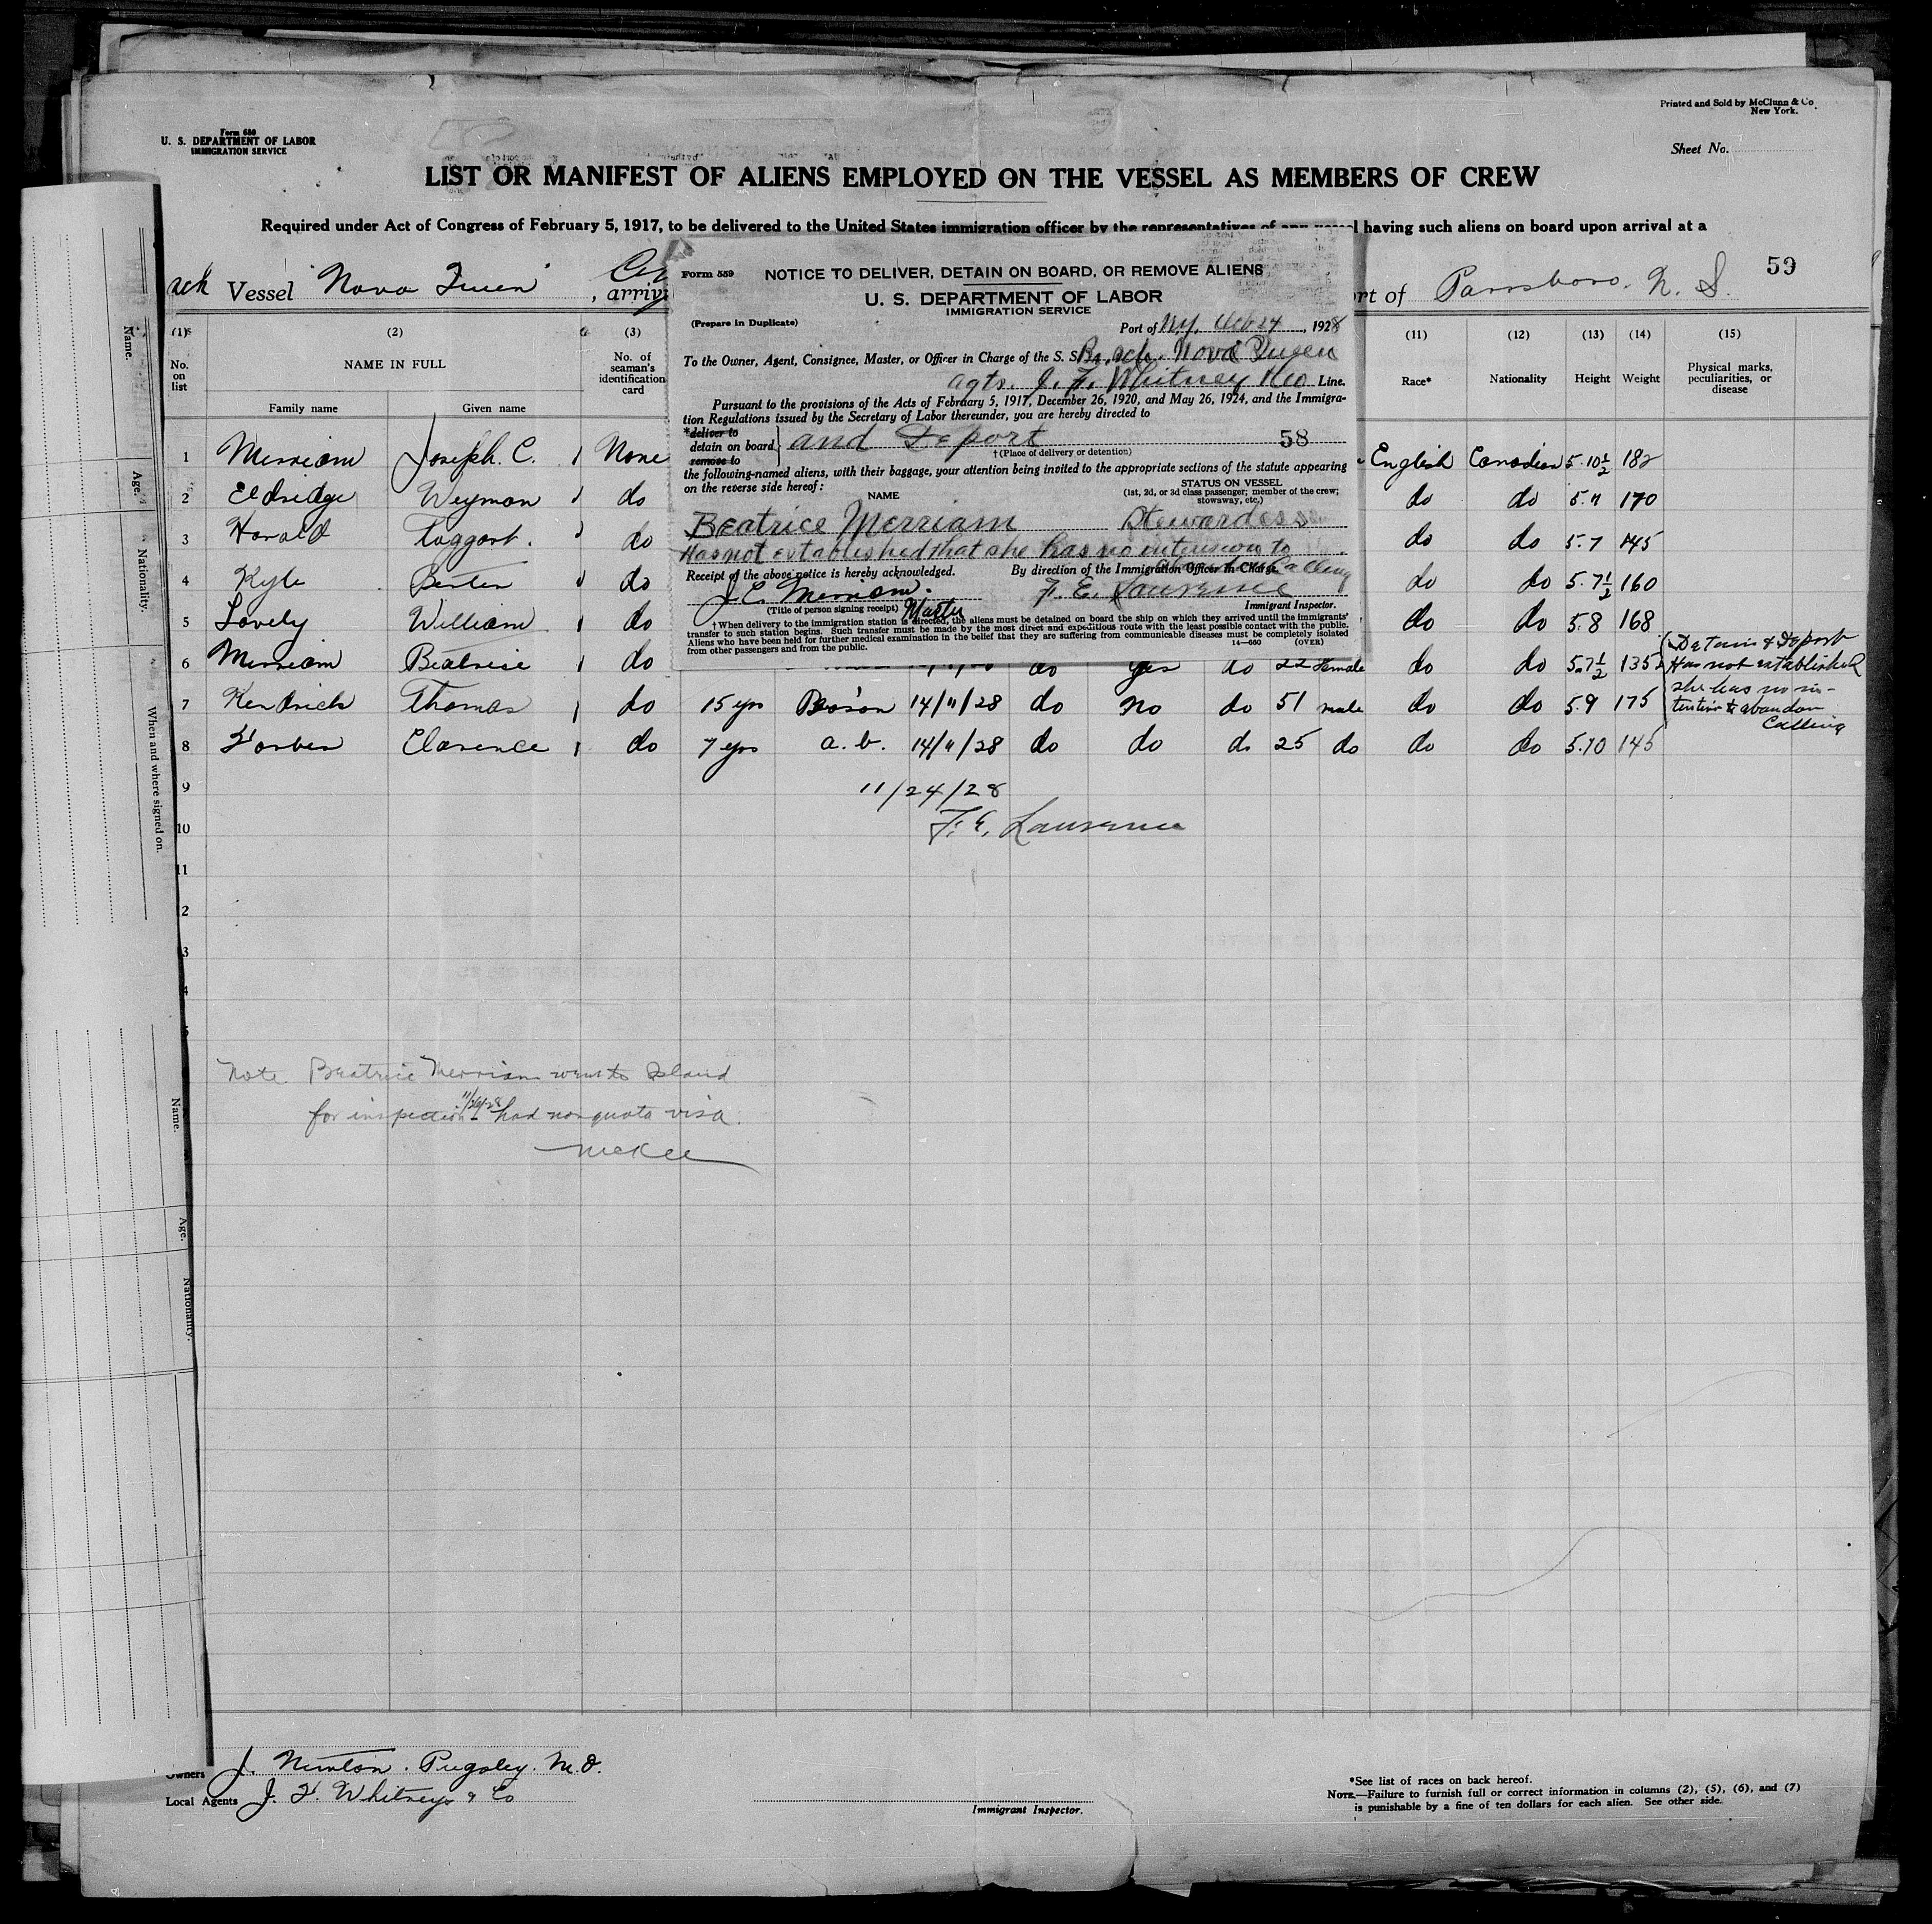 Printed and Sold by McClunn & Co.
New York.
Form 680
U. S. DEPARTMENT OF LABOR
IMMIGRATION SERVICE
Sheet No.
LIST OR MANIFEST OF ALIENS EMPLOYED ON THE VESSEL AS MEMBERS OF CREW
Required under Act of Congress of February 5, 1917, to be delivered to the United States immigration officer by the representatives of any vessel having such aliens on board upon arrival at a
sch Vessel Nova Queen , arriv
rt of Parrsboro. N. S. 59
Form 559 NOTICE TO DELIVER, DETAIN ON BOARD, OR REMOVE ALIENS
U. S. DEPARTMENT OF LABOR
IMMIGRATION SERVICE
(Prepare in Duplicate)
Port of N.Y. 24, 1928
To the Owner, Agent, Consignee, Master, or Officer in Charge of the S. S. Br. sch. Nova Queen
agts. J. F. Whitney & Co Line.
Pursuant to the provisions of the Acts of February 5, 1917, December 26, 1920, and May 26, 1924, and the Immigra-
tion Regulations issued by the Secretary of Labor thereunder, you are hereby directed to
*deliver to
detain on board and Deport 58
remove to
†(Place of delivery or detention)
the following-named aliens, with their baggage, your attention being invited to the appropriate sections of the statute appearing
on the reverse side hereof:
NAME
STATUS ON VESSEL
(1st, 2d, or 3d class passenger; member of the crew;
stowaway, etc.)
Beatrice Merriam Stewardess
Has not established that she has no intension to
Calling
Receipt of the above notice is hereby acknowledged. By direction of the Immigration Officer in Charge.
J. C. Merriam. F. E. Laurence
(Title of person signing receipt) Master Immigrant Inspector.
†When delivery to the immigration station is directed, the aliens must be detained on board the ship on which they arrived until the immigrants'
transfer to such station begins. Such transfer must be made by the most direct and expeditious route with the least possible contact with the public.
Aliens who have been held for further medical examination in the belief that they are suffering from communicable diseases must be completely isolated
from other passengers and from the public.
14—660 (OVER)
(1) (2) (3) (11) (12) (13) (14) (15)
No. on list
NAME IN FULL
Family name Given name
No. of seaman's identification card
Race* Nationality Height Weight
Physical marks, peculiarities, or disease
1 Merriam Joseph. C. None English Canadian 5-10½ 182
2 Eldridge Weyman do do do 5.11 170
3 Harold Taggart. do do do 5.7 145
4 Kyle do do do 5.7½ 160
5 Lovely William do do do 5.8 168
6 Merriam Beatrice do do yes do 22 Female do do 5.7½ 135
Detain & Deport
Has not established
she has no in-
tention to abandon
Calling
7 Kendrick Thomas do 15 yrs Bos'on 14/11/28 do No do 51 male do do 5.9 175
8 Forbes Clarence do 7 yrs a. b. 14/11/28 do do do 25 do do do 5.10 145
9
11/24/28
10
F. E. Laurence
11
2
3
4
5
Note Beatrice Merriam went to Island
for inspection 11/24-28 had non quota visa.
McKee
Name.
Age.
Nationality.
When and where signed on.
Name.
Age.
Nationality.
Owners J. Newton. Pugsley. M.O.
Local Agents J. F. Whitney & Co
Immigrant Inspector.
*See list of races on back hereof.
NOTE.—Failure to furnish full or correct information in columns (2), (5), (6), and (7)
is punishable by a fine of ten dollars for each alien. See other side.